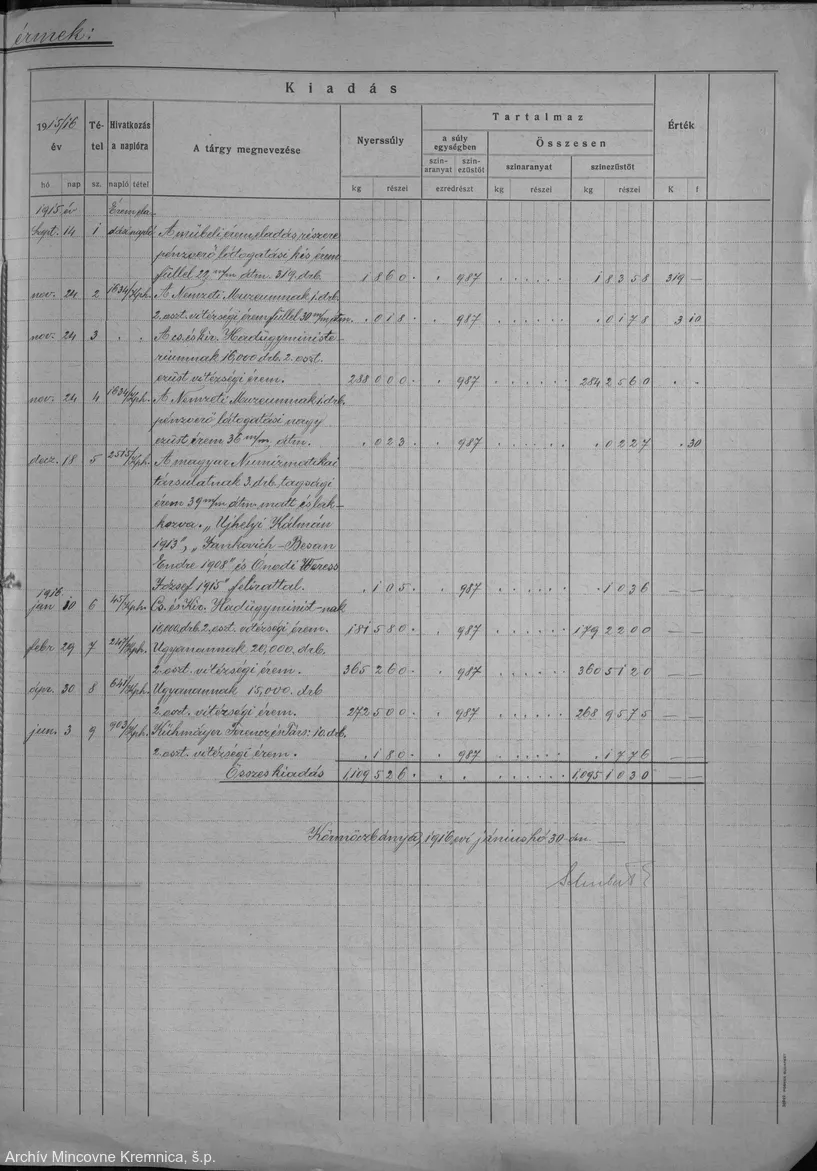 érmek:
Kiadás
1915/16 év Tétel Hivatkozás a naplóra A tárgy megnevezése Nyerssúly Tartalmaz Érték
a súly egységben Összesen
színaranyat színezüstöt színaranyat színezüstöt
hó nap sz. napló tétel kg részei ezredrészt kg részei kg részei K f
1915 év Érem ela-
Szept. 14 1 dási napló A műbeli érem eladás részére
pénzverő látogatási kis érem
füllel 22 m/m átm. 319 drb. 1 860 987 1 8358 319 —
nov. 24 2 1634/Kph. A Nemzeti Muzeumnak 1 drb.
2. oszt. vitézségi érem füllel 30 m/m átm. 018 987 0178 3 10
nov. 24 3 A cs. és kir. Hadügyministe-
riumnak 16,000 drb. 2. oszt.
ezüst vitézségi érem. 288 000 987 284 2560
nov. 24 4 1634/Kph. A Nemzeti Muzeumnak 1 drb.
pénzverő látogatási nagy
ezüst érem 36 m/m átm. 023 987 0227 30
decz. 18 5 2515/Kph. A magyar Numizmatikai
társulatnak 3 drb. tagsági
érem 39 m/m átm. matt és lak-
kozva. „Ujhelyi Kálmán
1913", „Jankovich-Besán
Endre 1908" és Ónodi Weress
József 1915" felirattal. 105 987 1036 — —
1916
jan 30 6 45/Kph. Cs. és Kir. Hadügyminist-nak
10,000 drb. 2. oszt. vitézségi érem. 181 580 987 179 2200 — —
febr 29 7 247/Kph. Ugyanannak 20,000 drb.
2. oszt. vitézségi érem. 365 260 987 360 5120 — —
ápr. 30 8 641/Kph. Ugyanannak 15,000 drb
2. oszt. vitézségi érem. 272 500 987 268 9575 — —
jun. 3 9 903/Kph. Kühmayer Ferencz és Társ: 10 drb.
2. oszt. vitézségi érem. 180 987 1776 — —
Összes kiadás 1,109 526 1,095 1030 — —
Körmöczbánya, 1916 évi június hó 30-án
Archív Mincovne Kremnica, š.p.